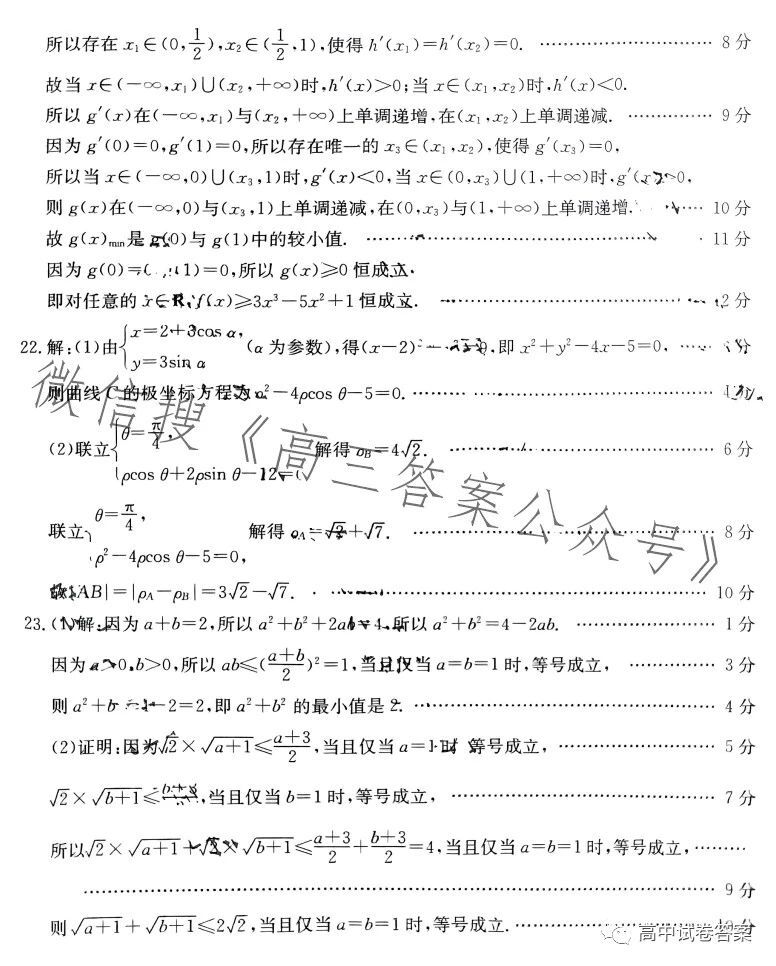 所以存在 x₁∈(0,1/2),x₂∈(1/2,1),使得 h′(x₁)=h′(x₂)=0. ………… 8分
故当 x∈(−∞,x₁)∪(x₂,+∞)时,h′(x)>0;当 x∈(x₁,x₂)时,h′(x)<0.
所以 g′(x)在(−∞,x₁)与(x₂,+∞)上单调递增,在(x₁,x₂)上单调递减. ………… 9分
因为 g′(0)=0,g′(1)=0,所以存在唯一的 x₃∈(x₁,x₂),使得 g′(x₃)=0,
所以当 x∈(−∞,0)∪(x₃,1)时,g′(x)<0,当 x∈(0,x₃)∪(1,+∞)时,g′(x)>0,
则 g(x)在(−∞,0)与(x₃,1)上单调递减,在(0,x₃)与(1,+∞)上单调递增. ………… 10分
故 g(x)min是 g(0)与 g(1)中的较小值. ………… 11分
因为 g(0)= (1)=0,所以 g(x)≥0 恒成立.
即对任意的 x∈R,f(x)≥3x³−5x²+1 恒成立. ………… 2分
22.解:(1)由{x=2+3cos α, y=3sin α (α 为参数),得(x−2)² ,即 x²+y²−4x−5=0, …… 分
则曲线 C 的极坐标方程为 ρ²−4ρcos θ−5=0. …………
(2)联立{θ=π/4, ρcos θ+2ρsin θ−12= 解得 ρB=4√2. ………… 6分
联立{θ=π/4, ρ²−4ρcos θ−5=0, 解得 ρA=√2+√7. ………… 8分
故|AB|=|ρA−ρB|=3√2−√7. ………… 10分
23.(1)解:因为 a+b=2,所以 a²+b²+2ab=4,所以 a²+b²=4−2ab. ………… 1分
因为 a>0,b>0,所以 ab≤((a+b)/2)²=1,当且仅当 a=b=1 时,等号成立, ………… 3分
则 a²+b 2=2,即 a²+b² 的最小值是 2. ………… 4分
(2)证明:因为√2×√(a+1)≤(a+3)/2,当且仅当 a=1时 等号成立, ………… 5分
√2×√(b+1)≤(b+3) ,当且仅当 b=1 时,等号成立, ………… 7分
所以√2×√(a+1)+√2×√(b+1)≤(a+3)/2+(b+3)/2=4,当且仅当 a=b=1 时,等号成立,………
………… 9分
则√(a+1)+√(b+1)≤2√2,当且仅当 a=b=1 时,等号成立. …………
微信搜《高三答案公众号》
高中试卷答案